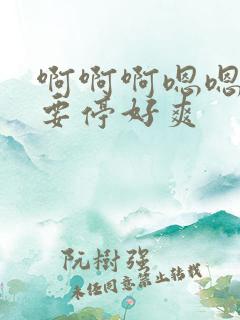 啊啊啊嗯嗯
要停好爽
阮樹强
未任同意禁止转载